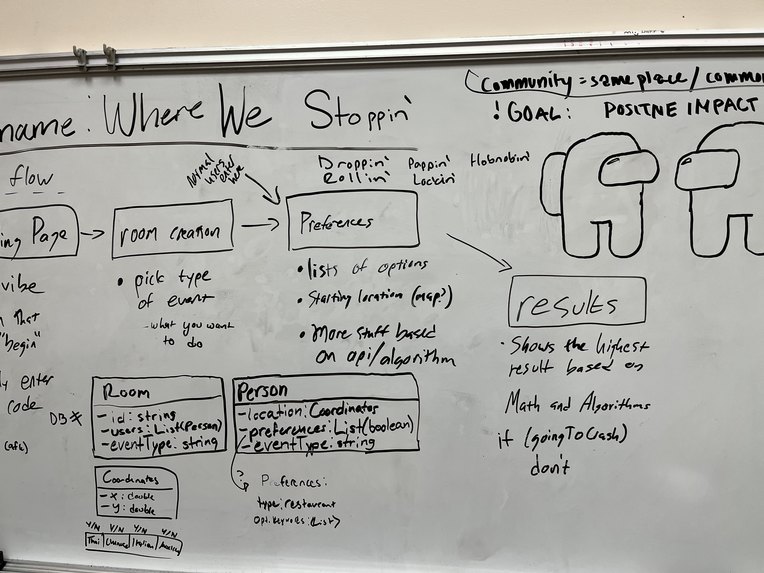 Community = same place / common
name: Where We Stoppin'
! GOAL: POSITIVE IMPACT
flow
Normal users enter here
Droppin' Poppin' Hobnobin'
Rollin' Lockin'
ing Page
room creation
Preferences
results
vibe
n That
"begin"
ly enter
code
• pick type
of event
- what you want
to do
• lists of options
• Starting location (map?)
• More stuff based
on api/algorithm
• Shows the highest
result based on
Math and Algorithms
if (goingToCrash)
don't
DB*
Room
- id: string
- users: List(Person)
- eventType: string
Person
- location: Coordinates
- preferences: List(boolean)
- eventType: string
Coordinates
- x: double
- y: double
? Preferences:
type: restaurant
opt. keywords: (List)
Y/N Y/N Y/N Y/N
Thai Chinese Italian